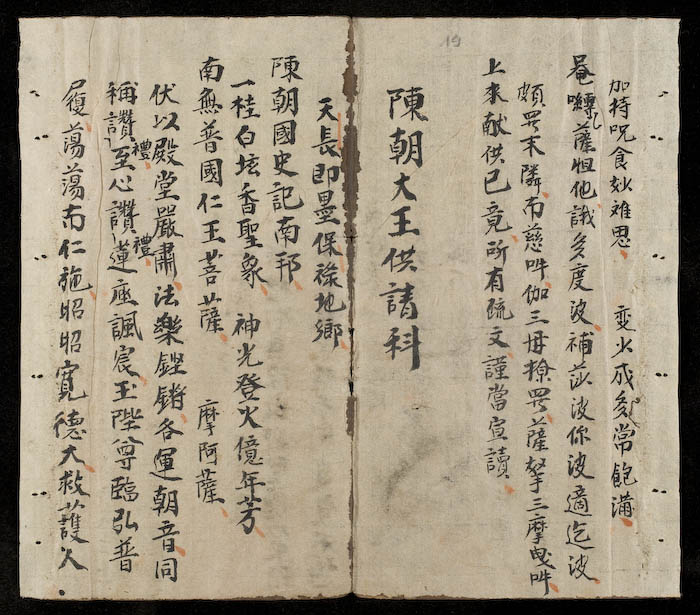 加持呪食妙难思 变少成多常飽满
薩怛他誐多度波補莎波你波適迄波
頗罗末隣南慈吽伽三毋撩罗薩拏三摩曳吽
上来献供已竟所有疏文謹當宣讀
陳朝大王供請科
天長即墨保祿地鄉
陳朝國史記南邦
一桂白坛香聖象 神光登火億年芳
南無普國仁王菩薩 摩阿薩
伏以殿堂嚴肅法樂鏗鏘各運朝音同
稱讚禮至心讚禮蓮座諷宸玉陛尊臨弘普
履蕩蕩南仁施昭昭寬德大救護人
19